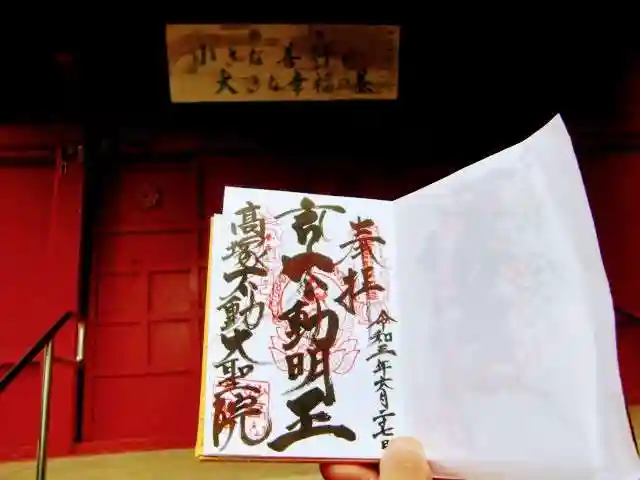 小さな善行は
大きな幸福の基
奉拝
令和三年六月二十七日
不動明王
高塚不動大聖院